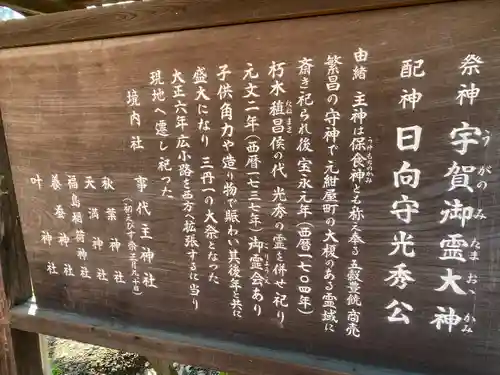 祭神 宇賀御霊大神
うがのみたまおゝかみ
配神 日向守光秀公
由緒 主神は保食神とも称え奉る五穀豊饒 商売
うけもちのかみ
繁昌の守神で元紺屋町の大榎のある霊域に
斎き祀られ後 宝永元年(西暦一七〇四年)
朽木稙昌侯の代 光秀の霊を併せ祀り
たねまさ
元文二年(西暦一七三七年)御霊会あり
ごりょうえ
子供角力や造り物で賑わい其後年と共に
盛大になり 三丹一の大祭となった
大正六年広小路を西方へ拡張するに当り
現地へ遷し祀った
境内社 事代主神社
(初えびす祭 正月九・十日)
秋葉神社
天満神社
福島稲荷神社
養蚕神社
叶神社